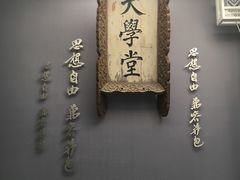 大學堂
思想自由
兼容并包
思想自由
兼容并包